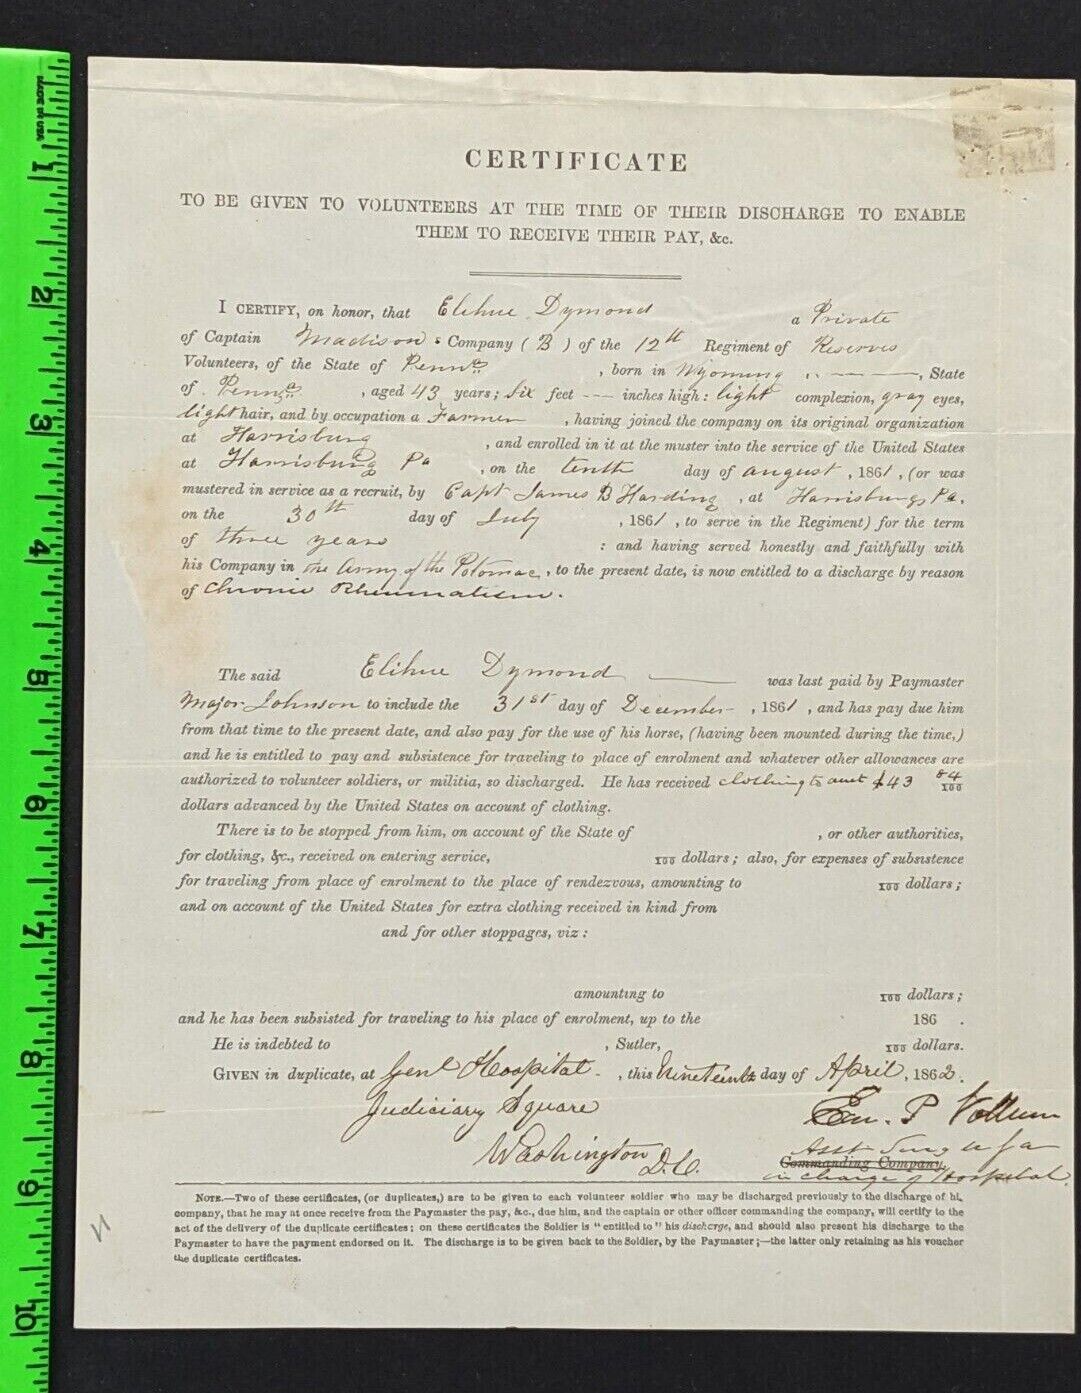 MADE IN USA
1
2
3
4
5
6
7
8
9
10
CERTIFICATE
TO BE GIVEN TO VOLUNTEERS AT THE TIME OF THEIR DISCHARGE TO ENABLE
THEM TO RECEIVE THEIR PAY, &c.
I CERTIFY, on honor, that Elihue Dymond a Private
of Captain Madison's Company ( B ) of the 12th Regiment of Reserves
Volunteers, of the State of Penna , born in Wyoming , State
of Penna , aged 43 years; Six feet --- inches high: light complexion, gray eyes,
light hair, and by occupation a Farmer , having joined the company on its original organization
at Harrisburg , and enrolled in it at the muster into the service of the United States
at Harrisburg Pa , on the tenth day of august , 1861, (or was
mustered in service as a recruit, by Capt James B Harding , at Harrisburg, Pa.
on the 30th day of July , 1861 , to serve in the Regiment) for the term
of three years : and having served honestly and faithfully with
his Company in the Army of the Potomac , to the present date, is now entitled to a discharge by reason
of Chronic Rheumatism.
The said Elihue Dymond was last paid by Paymaster
Major Johnson to include the 31st day of December , 1861 , and has pay due him
from that time to the present date, and also pay for the use of his horse, (having been mounted during the time,)
and he is entitled to pay and subsistence for traveling to place of enrolment and whatever other allowances are
authorized to volunteer soldiers, or militia, so discharged. He has received clothing to amt $43 84/100
dollars advanced by the United States on account of clothing.
There is to be stopped from him, on account of the State of , or other authorities,
for clothing, &c., received on entering service, 100 dollars; also, for expenses of subsistence
for traveling from place of enrolment to the place of rendezvous, amounting to 100 dollars;
and on account of the United States for extra clothing received in kind from
and for other stoppages, viz:
amounting to 100 dollars;
and he has been subsisted for traveling to his place of enrolment, up to the 186 .
He is indebted to , Sutler, 100 dollars.
GIVEN in duplicate, at Genl Hospital , this Nineteenth day of April, 1862.
Judiciary Square
Washington D.C.
Em. P Vollum
Asst Surg U S A
Commanding Company.
in charge of Hospital.
NOTE.—Two of these certificates, (or duplicates,) are to be given to each volunteer soldier who may be discharged previously to the discharge of his
company, that he may at once receive from the Paymaster the pay, &c., due him, and the captain or other officer commanding the company, will certify to the
act of the delivery of the duplicate certificates; on these certificates the Soldier is "entitled to" his discharge, and should also present his discharge to the
Paymaster to have the payment endorsed on it. The discharge is to be given back to the Soldier, by the Paymaster;—the latter only retaining as his voucher
the duplicate certificates.